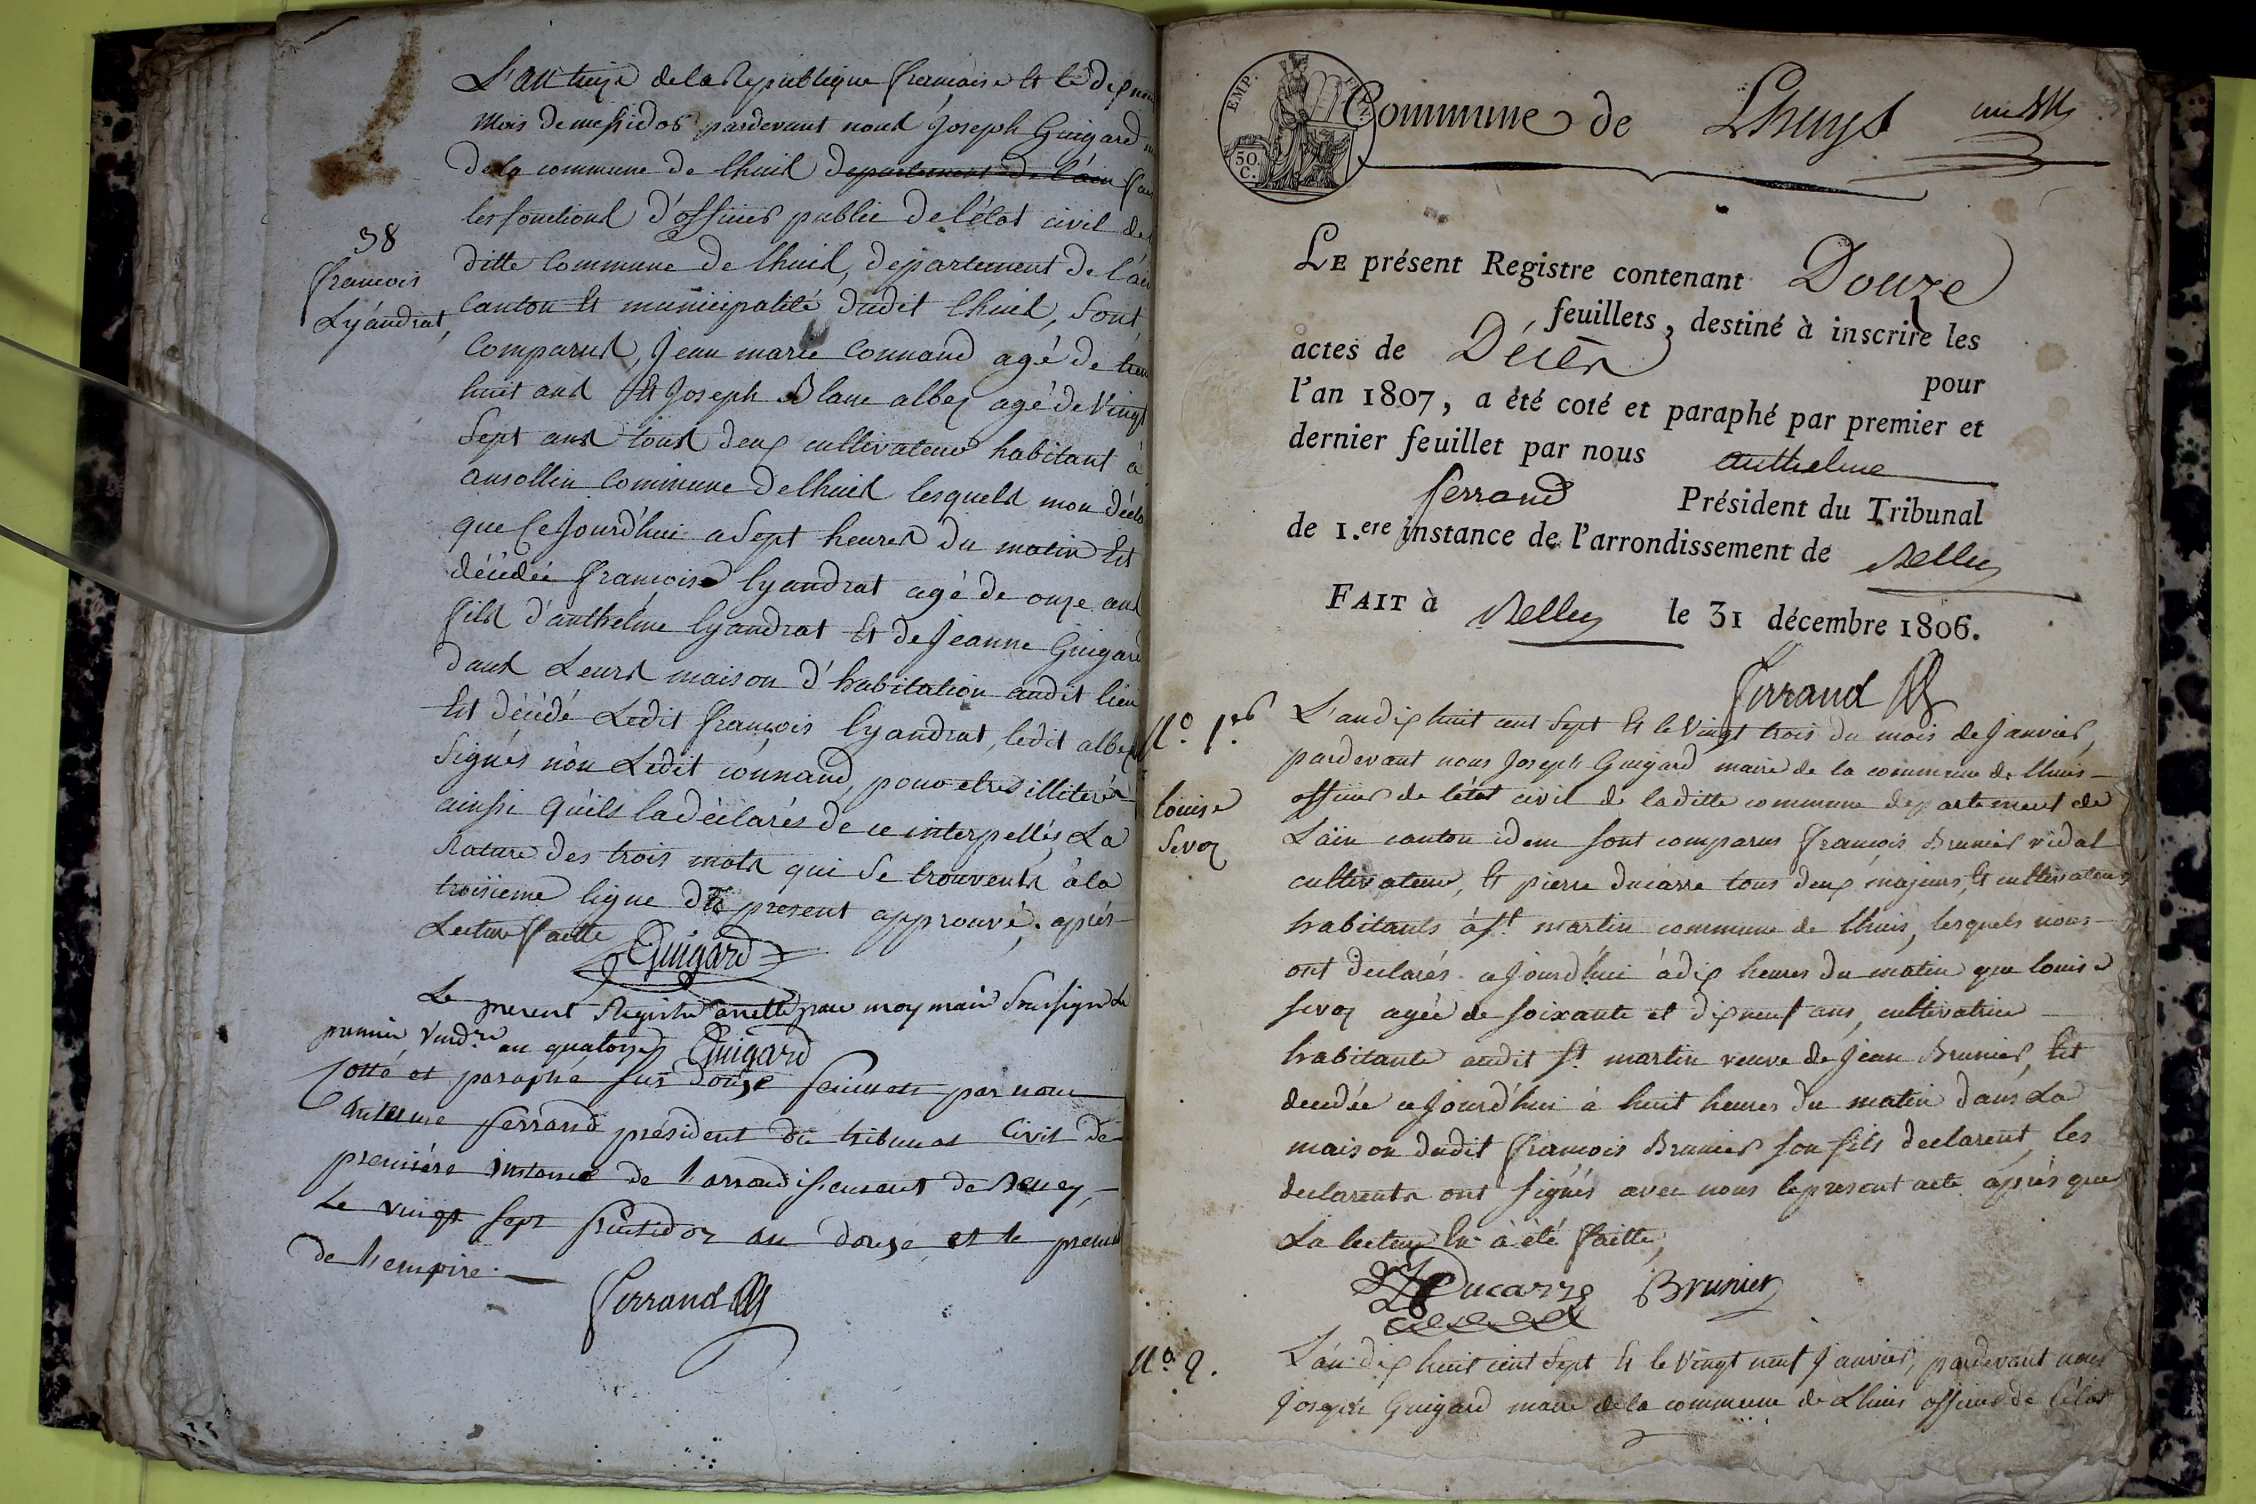 L'an treize de la Republique francaise et le dix neuf
mois de messidor pardevant nous Joseph Guigard
de la commune de lhuis departement de l'ain
les fonctions d'officier public de l'état civil de
38
francois
Lyandrat,
ditte commune de lhuis, departement de l'ain
canton et municipalité dudit lhuis, sont
comparus, Jean marie Connand agé de
huit ans et Joseph Blanc albez agé de Vingt
Sept ans tous deux cultivateur habitant à
ansollin commune de lhuis lesquels mon décla
que Ce Jourd'hui a Sept heures du matin Est
décédée francoise lyandrat agé de onze ans
fils d'anthelme lyandrat et de Jeanne Guigard
dans Leurs maison d'habitation audit lieu
Est décédé Ledit françois lyandrat, ledit albez
Signés non Ledit connand, pour etre illiteré
ainssi quils la déclarés de ce interpellés La
Rature des trois mots qui Se trouvents à la
troisieme ligne du present approuvé. aprés
Lecture faitte Guigard
Le present Registre arretté par moy maire Soussigné Le
premier Vend.re an quatorze Guigard
Cotté et paraphé sur douze feuillets par nous
antelme ferrand président du tribunal Civil de
premiére instance de l'arrondissement de Belley,
Le vingt sept fructidor an douze et le premier
de l'empire.
Ferrand
EMP.
50.
C.
Commune de Lhuys
LE présent Registre contenant Douze
feuillets, destiné à inscrire les
actes de Décès pour
l'an 1807, a été coté et paraphé par premier et
dernier feuillet par nous anthelme
ferrand Président du Tribunal
de 1.ere instance de l'arrondissement de Belley
FAIT à Belley le 31 décembre 1806.
Ferrand
N.o 1.er
L'an dix huit cent Sept et le Vingt trois du mois de Janvier,
pardevant nous Joseph Guigard maire de la commune de lhuis
louise
Sevoz
officier de létat civil de laditte commune departement de
L'ain canton idem sont comparus francois Brunier vidal
cultivateur, et pierre ducarre tous deux majeurs, et cultivateurs
habitants à St. martin commune de lhuis, lesquels nous
ont declarés ce Jourd'hui à dix heures du matin que louise
sevoz agée de soixante et dix neuf ans, cultivatrice
habitante audit St. martin veuve de Jean Brunier, Est
decedée ce Jourd'hui à huit heures du matin dans La
maison dudit francois Brunier son fils declarent, les
declarents ont signés avec nous le present acte aprés que
La lecture En à été faitte,
Ducarre Brunier
N.o 2.
L'an dix huit cent Sept et le Vingt neuf Janvier, pardevant nous
Joseph Guigard maire de la commune de Lhuis officier de létat